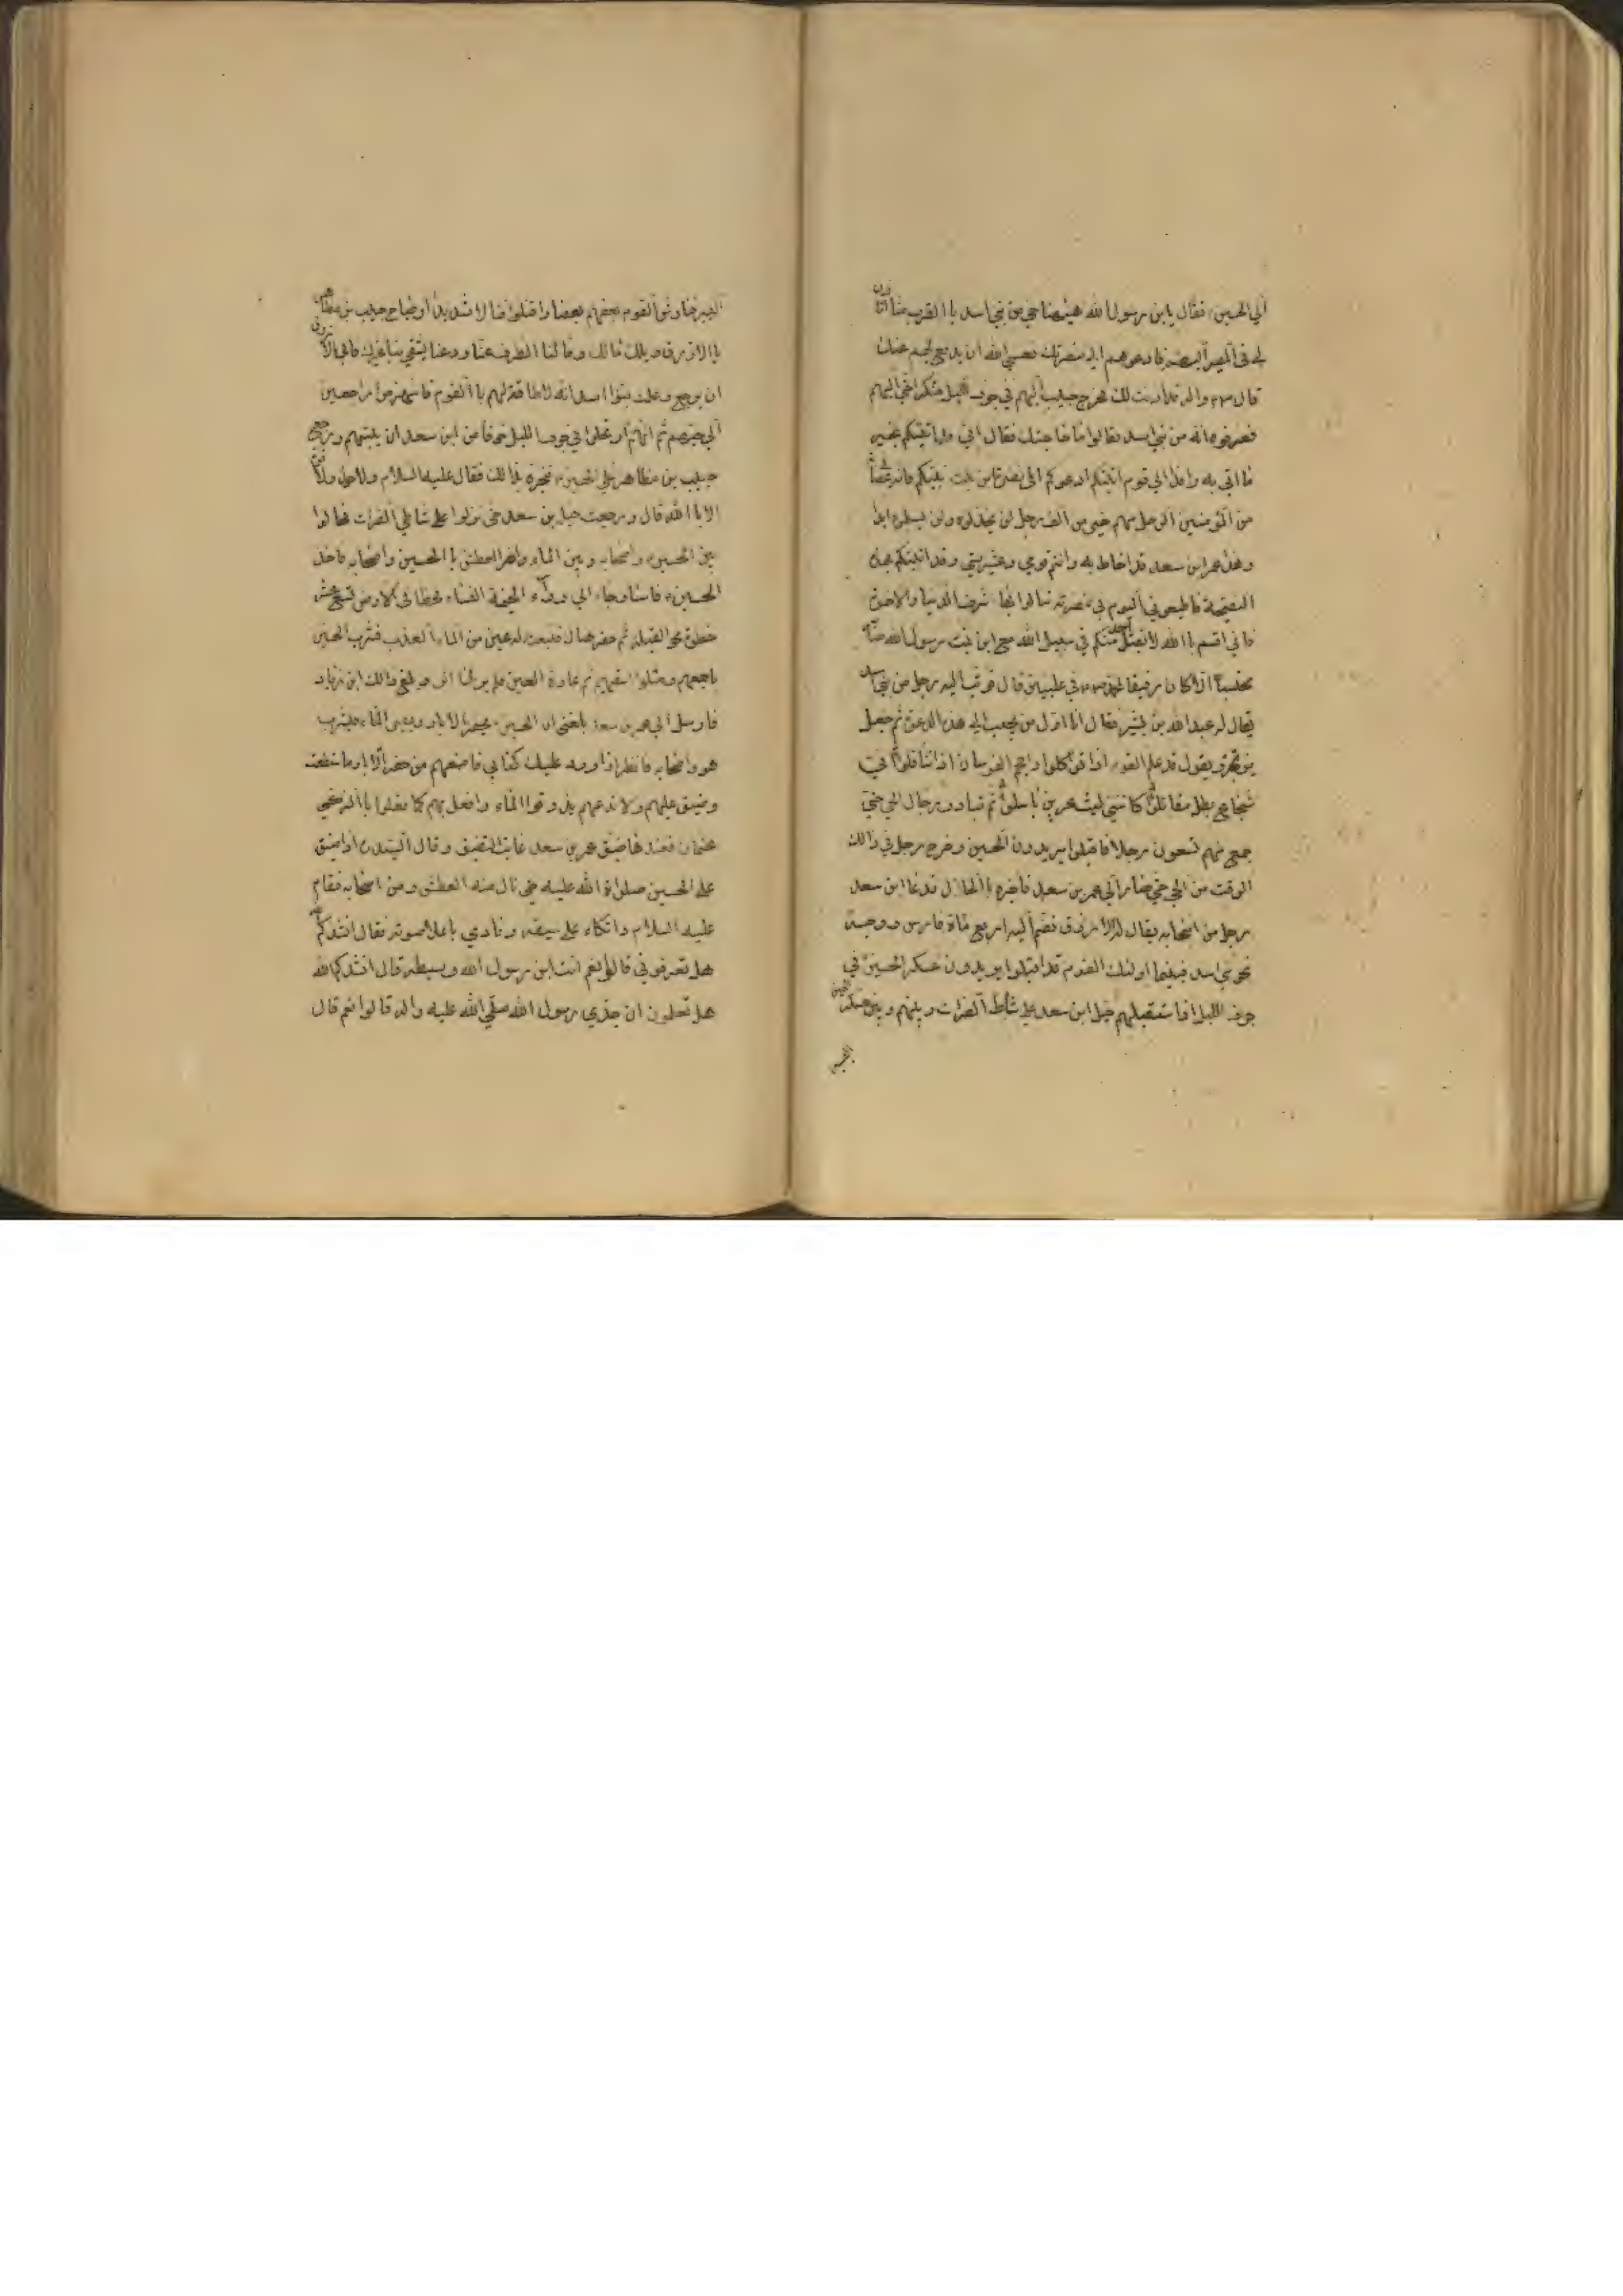 الي الحسين فقال يابن رسول الله هيهنا حي من بني اسد با القرب منا اتاذن
لي في المصير اليهم فادعوهم الي نصرتك فعسي الله ان يدفع بهم عنك
قال قد اذنت لك فخرج حبيب اليهم في جوف الليل متنكرا حتي اتي اليهم
فعرفوه انه من بني اسد فقالوا ما حاجتك فقال اني قد اتيتكم بخير
ما اتي به وافد الي قوم اتيتكم ادعوكم الي نصرة ابن بنت نبيكم فانه في عصابة
من المؤمنين الرجل منهم خير من الف رجل لن يخذلوه ولن يسلموه ابدا
وهذا عمر ابن سعد قد احاط به وانتم قومي وعشيرتي وقد اتيتكم بهذه
النصيحة فاطيعوني اليوم في نصرته تنالوا بها شرف الدنيا والاخرة
فاني اقسم با الله لا يقتل احد منكم في سبيل الله مع ابن بنت رسول الله
محتسبا الا كان رفيقا لمحمد في عليين قال فوثب اليه رجل من بني اسد
يقال له عبد الله بن بشير فقال انا اول من يجيب الي هذه الدعوة ثم جعل
يرتجز ويقول قد علم القوم اذا تواكلوا واحجم الفرسان اذ تثاقلوا اني
شجاع بطل مقاتل كانني ليث عرين باسل ثم تبادر رجال الحي حتي
جمع منهم تسعون رجلا فاقبلوا يريدون الحسين وخرج رجل في ذالك
الوقت من الحي حتي صار الي عمر بن سعد فاخبره با الحال فدعا ابن سعد
رجل من اصحابه يقال له الازرق فضم اليه اربع ماة فارس ووجه
نحو بني اسد فبينما اولئك القوم قد اقبلوا يريدون عسكر الحسين في
جوف الليل اذا ستقبلهم خيل ابن سعد علي شاطئ الفرات وبينهم وبين عسكر الحسين
اليسير
اليسير فناوش القوم بعضهم بعضا واقتتلوا قتالا شديدا وصاح حبيب بن مظاهر
با الازرق ويلك مالك ومالنا انصرف عنا ودعنا يشقي بنا غيرك فابي الازرق
ان يرجع وعلمت بنوا اسد انه لا طاقة لهم با القوم فانهزموا راجعين
الي حيهم ثم انهم ارتحلوا في جوف الليل خوفا من ابن سعد ان يبيتهم ورجع
حبيب بن مظاهر الي الحسين فخبره بذالك فقال عليه السلام ولا حول ولا قوة
الا با الله قال ورجعت خيل بن سعد حتي نزلوا علي شاطي الفرات فحالوا
بين الحسين واصحابه وبين الماء واضر العطش با الحسين واصحابه فاخذ
الحسين فاسا وجاء الي وراء الخيمة النساء فخطا في الارض تسع عشر
خطوة نحو القبلة ثم حفر هنال فنبعت له عين من الماء العذب فشرب الحسين
باجمعهم وملئوا اسقيهم ثم غارة العين فلم ير لها اثر وبلغ ذالك ابن زياد
فارسل الي عمر بن سعد بلغني ان الحسين يحفر الابار ويصيب الماء فيشرب
هو واصحابه فانظر اذا ورد عليك كتابي فامنعهم من حفر الابار ما استطعت
وضيق عليهم ولا تدعهم يذوقوا الماء وافعل بهم كما فعلوا با الزكي
عثمان فعندها ضيق عمر بن سعد غاية التضيق
علي الحسين صلواة الله عليه حتي نال منه العطش ومن اصحابه فقام
عليه السلام واتكاء علي سيفه ونادي باعلا صوته فقال انشدكم الله
هل تعرفوني قالوا نعم انت ابن رسول الله وسبطه قال انشدكم الله
هل تعلمون ان جدي رسول الله صلي الله عليه واله قالوا نعم قال